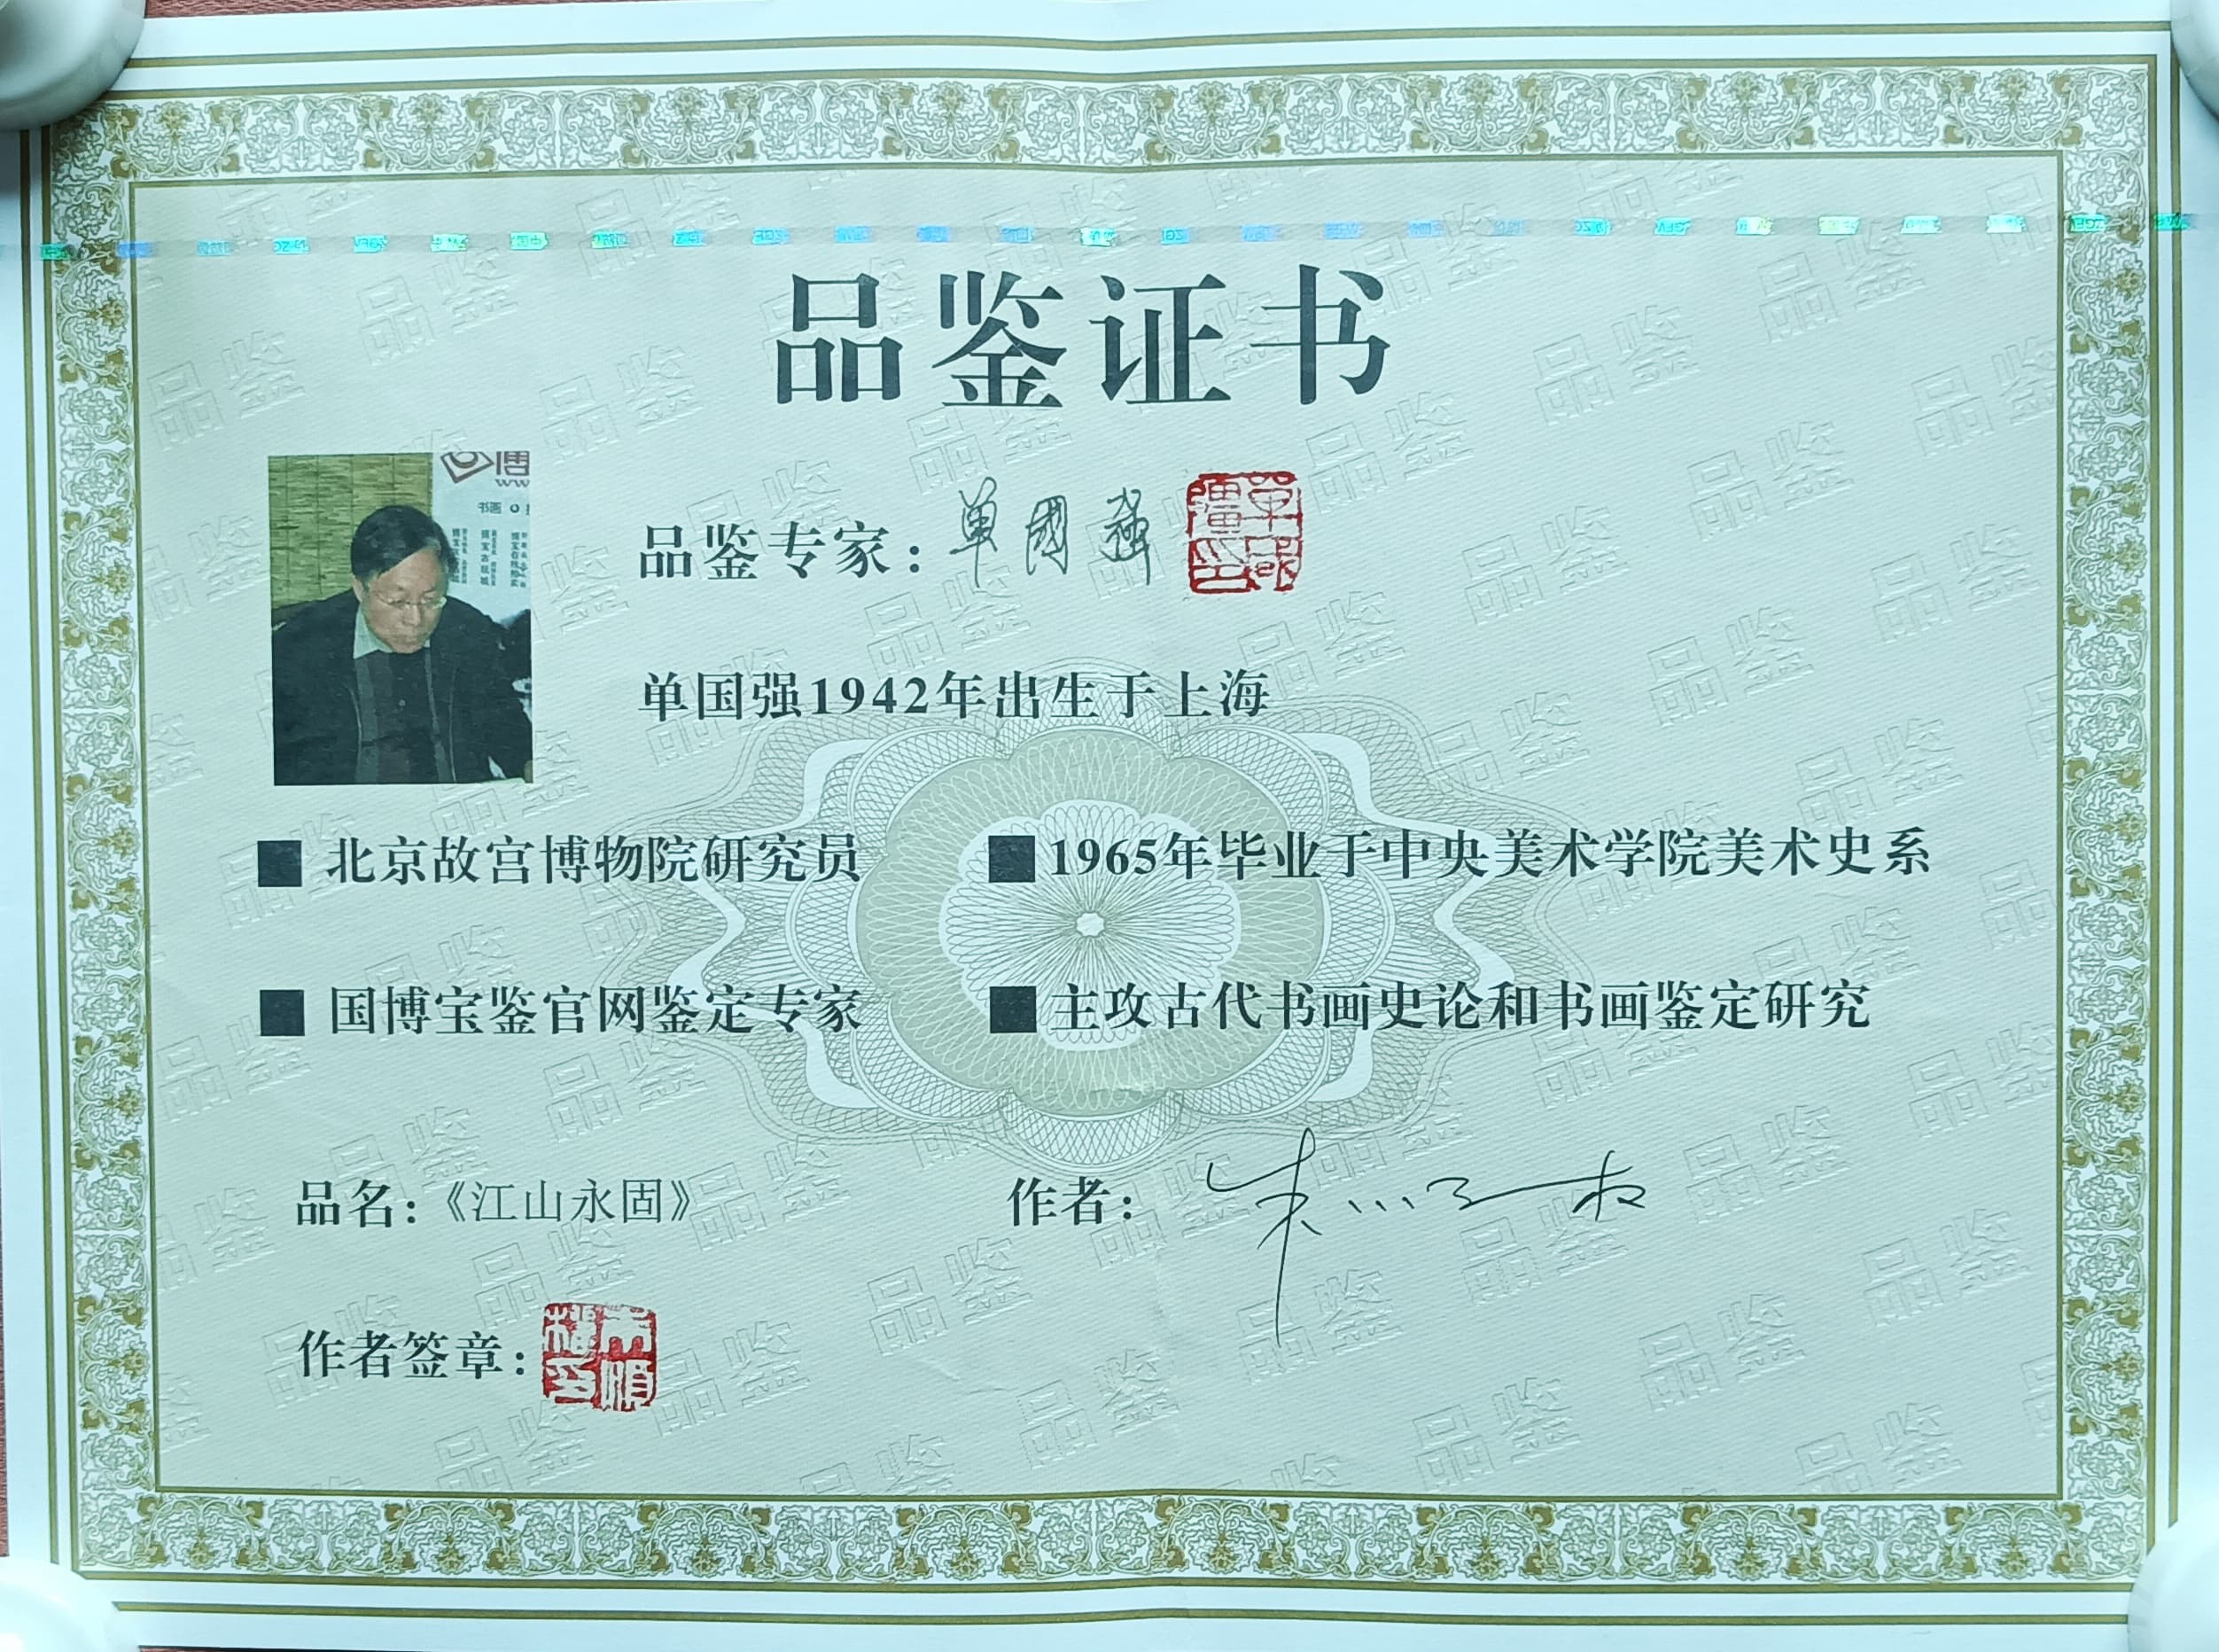 品鉴证书
品鉴专家：单國强
单国强1942年出生于上海
北京故宫博物院研究员
1965年毕业于中央美术学院美术史系
国博宝鉴官网鉴定专家
主攻古代书画史论和书画鉴定研究
品名：《江山永固》
作者：
作者签章：
书画
品鉴